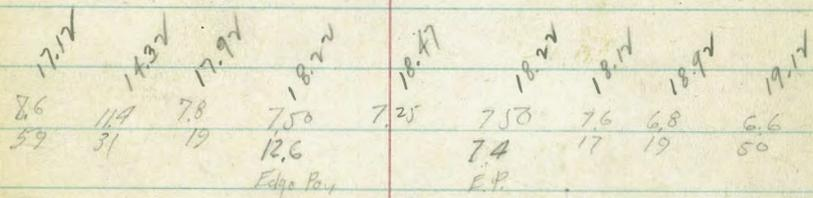 17.12 14.32 17.92 18.22 18.47 18.22 18.12 18.92 19.12
8.6 11.4 7.8 7.50 7.25 7.50 7.6 6.8 6.6
59 31 19 12.6 7.4 17 19 50
Edge Pav. E.P.